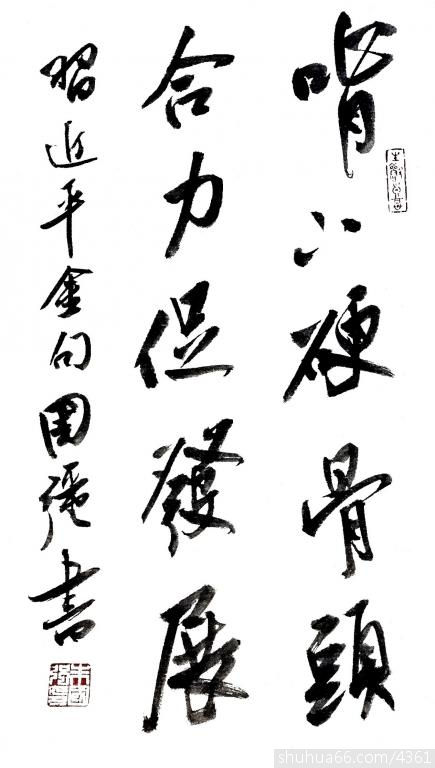 啃下硬骨頭
合力促發展
習近平金句國強書
shuhua66.com/4361